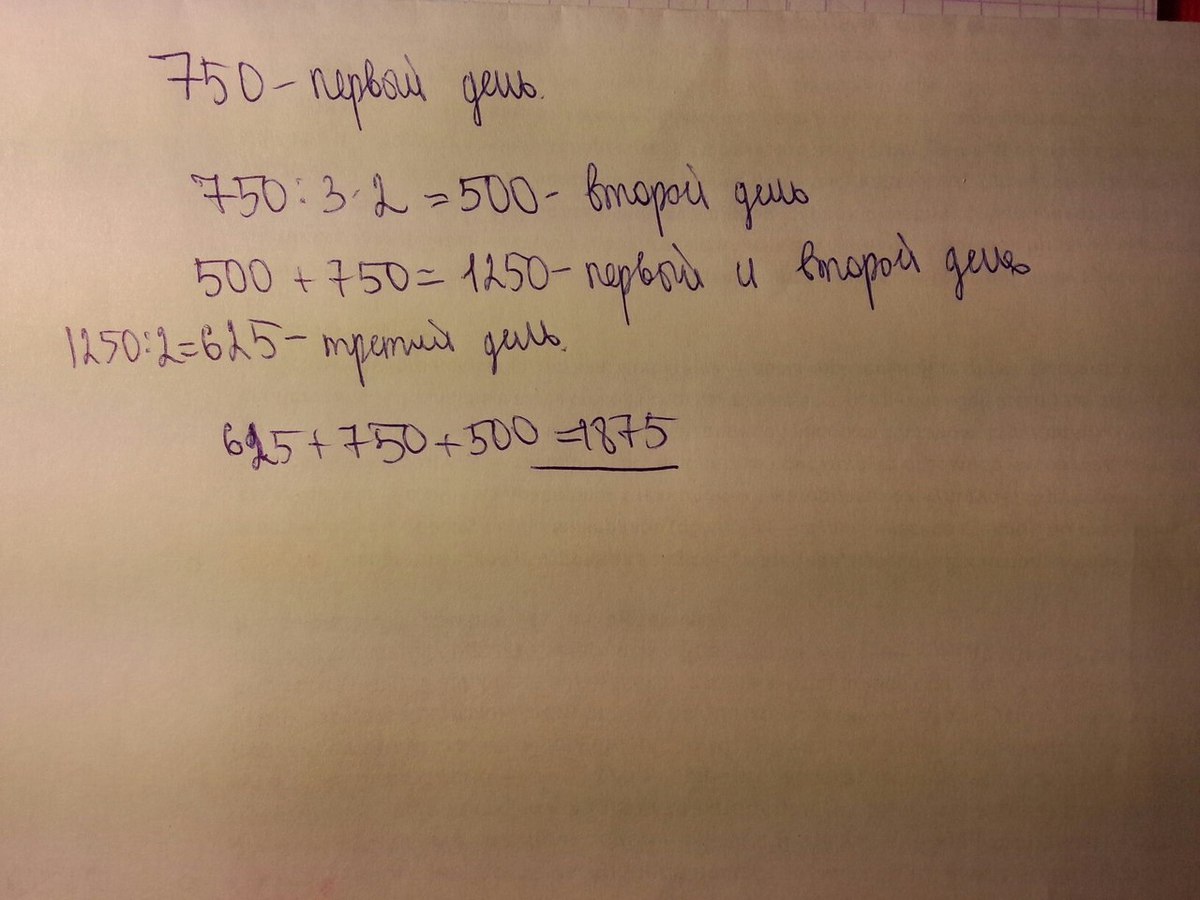 750 - первый день.
750 : 3 · 2 = 500 - второй день
500 + 750 = 1250 - первый и второй день
1250 : 2 = 625 - третий день.
625 + 750 + 500 = 1875